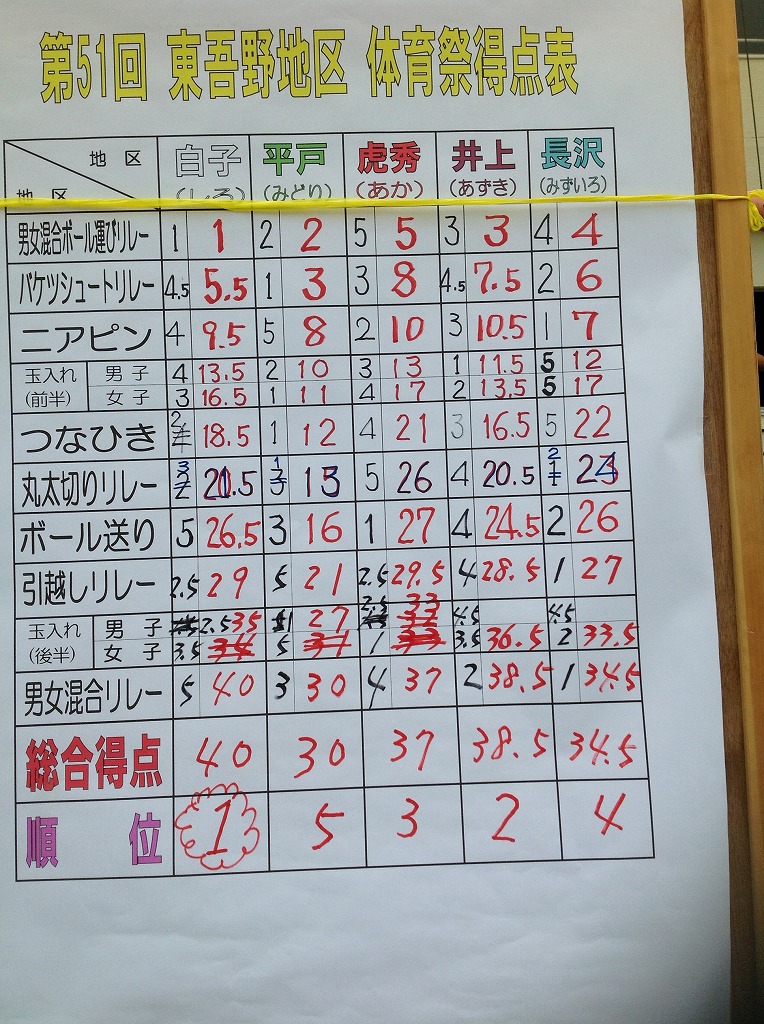 第51回 東吾野地区 体育祭得点表
地区 白子 平戸 虎秀 井上 長沢
地区 (しろ) (みどり) (あか) (あずき) (みずいろ)
男女混合ボール運びリレー 1 1 2 2 5 5 3 3 4 4
バケツシュートリレー 4.5 5.5 1 3 3 8 4.5 7.5 2 6
ニアピン 4 9.5 5 8 2 10 3 10.5 1 7
玉入れ (前半) 男子 4 13.5 2 10 3 13 1 11.5 5 12
女子 3 16.5 1 11 4 17 2 13.5 5 17
つなひき 2 18.5 1 12 4 21 3 16.5 5 22
丸太切りリレー 3 21.5 1 13 5 26 4 20.5 2 24
ボール送り 5 26.5 3 16 1 27 4 24.5 2 26
引越しリレー 2.5 29 5 21 2.5 29.5 4 28.5 1 27
玉入れ (後半) 男子 2.5 35 1 27 2.5 33 4.5 4.5
女子 3.5 34 5 1 33 3.5 36.5 2 33.5
男女混合リレー 5 40 3 30 4 37 2 38.5 1 34.5
総合得点 40 30 37 38.5 34.5
順位 1 5 3 2 4